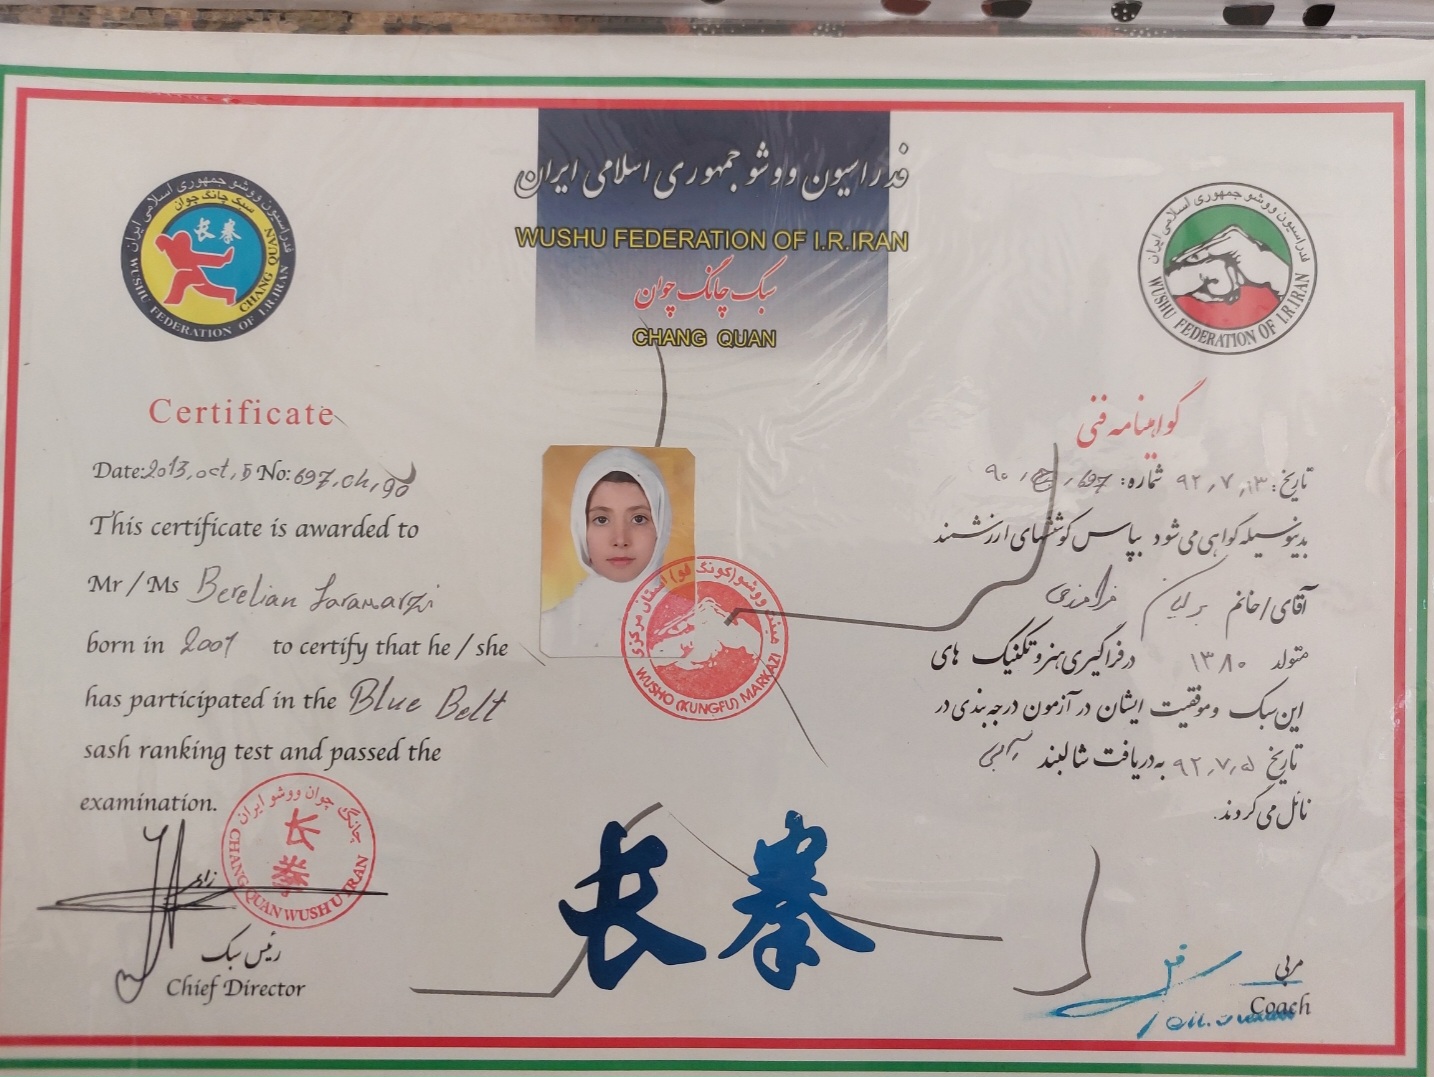 فدراسیون ووشو جمهوری اسلامی ایران
WUSHU FEDERATION OF I.R.IRAN
سبک چانگ چوان
CHANG QUAN
فدراسیون ووشو جمهوری اسلامی ایران
سبک چانگ چوان
长拳
CHANG QUAN
WUSHU FEDERATION OF I.R.IRAN
فدراسیون ووشو جمهوری اسلامی ایران
WUSHU FEDERATION OF I.R.IRAN
Certificate
Date:2013,oct,5 No:697,ch,90
This certificate is awarded to
Mr / Ms Berelian faramarzi
born in 2001 to certify that he / she
has participated in the Blue Belt
sash ranking test and passed the
examination.
گواهینامه فنی
تاریخ: ۹۲,۷,۱۳ شماره: ۶۹۷ ۹۰
بدینوسیله گواهی می‌شود بپاس کوششهای ارزشمند
آقای/خانم برلیان فرامرزی
متولد ۱۳۸۰ در فراگیری هنر و تکنیک های
این سبک و موفقیت ایشان در آزمون درجه بندی در
تاریخ ۹۲,۷,۵ به دریافت شالبند
نائل می گردند.
ووشو(کونگ فو) استان مرکزی
WUSHO (KUNGFU) MARKAZI
چانگ چوان ووشو ایران
长拳
CHANG QUAN WUSHU IRAN
رئیس سبک
Chief Director
长拳
مربی
Coach